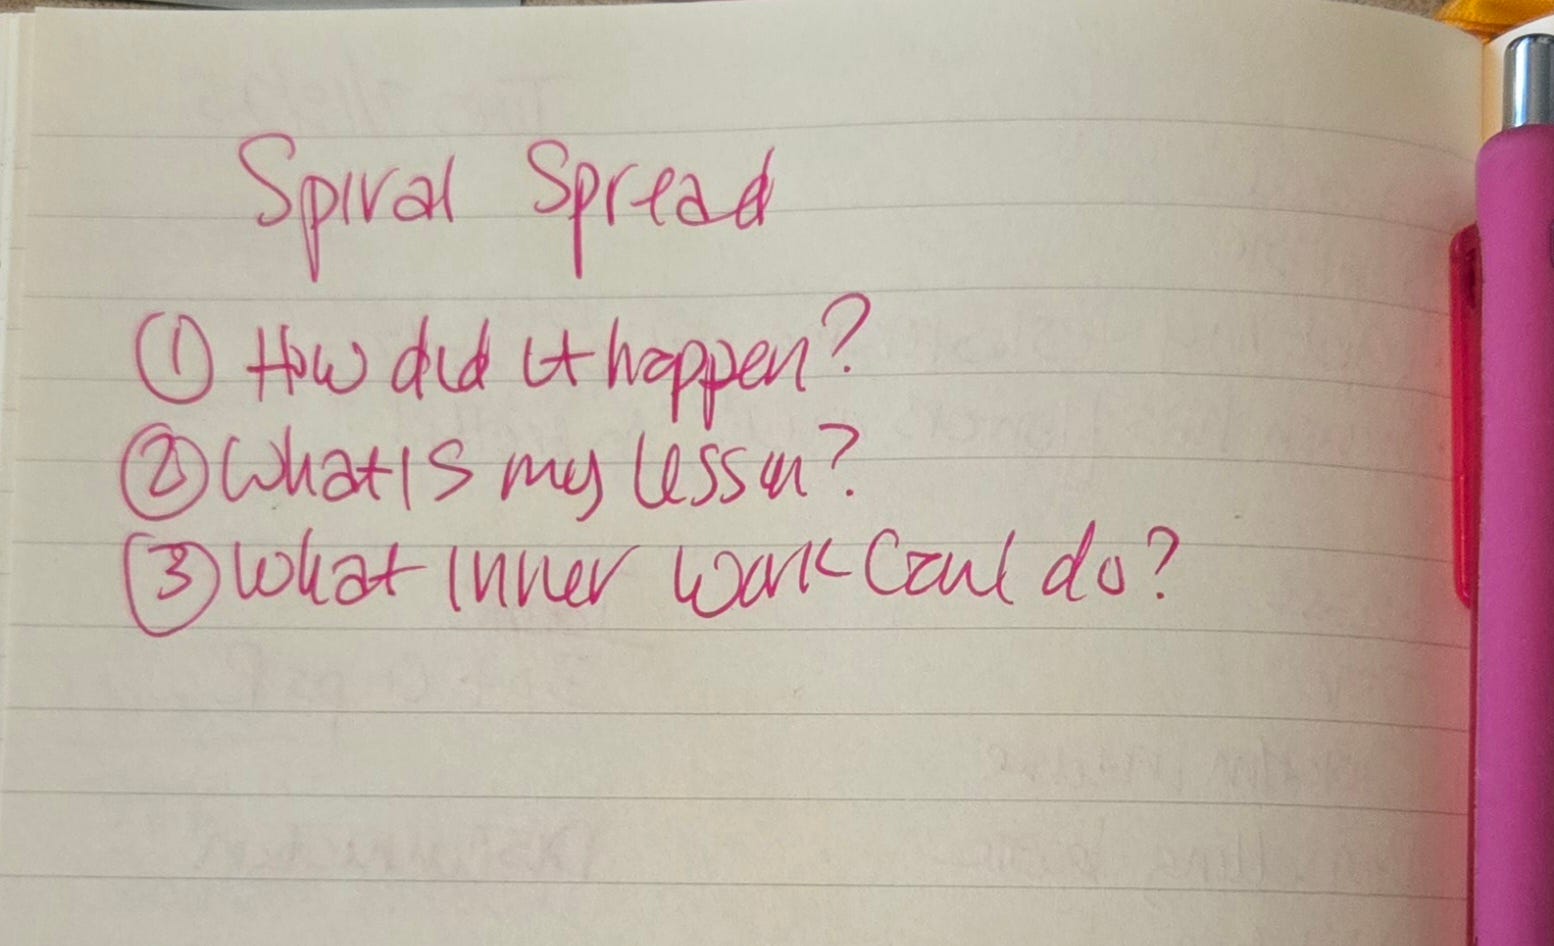 Spiral Spread
① How did it happen?
② What is my lesson?
③ What inner work Can I do?